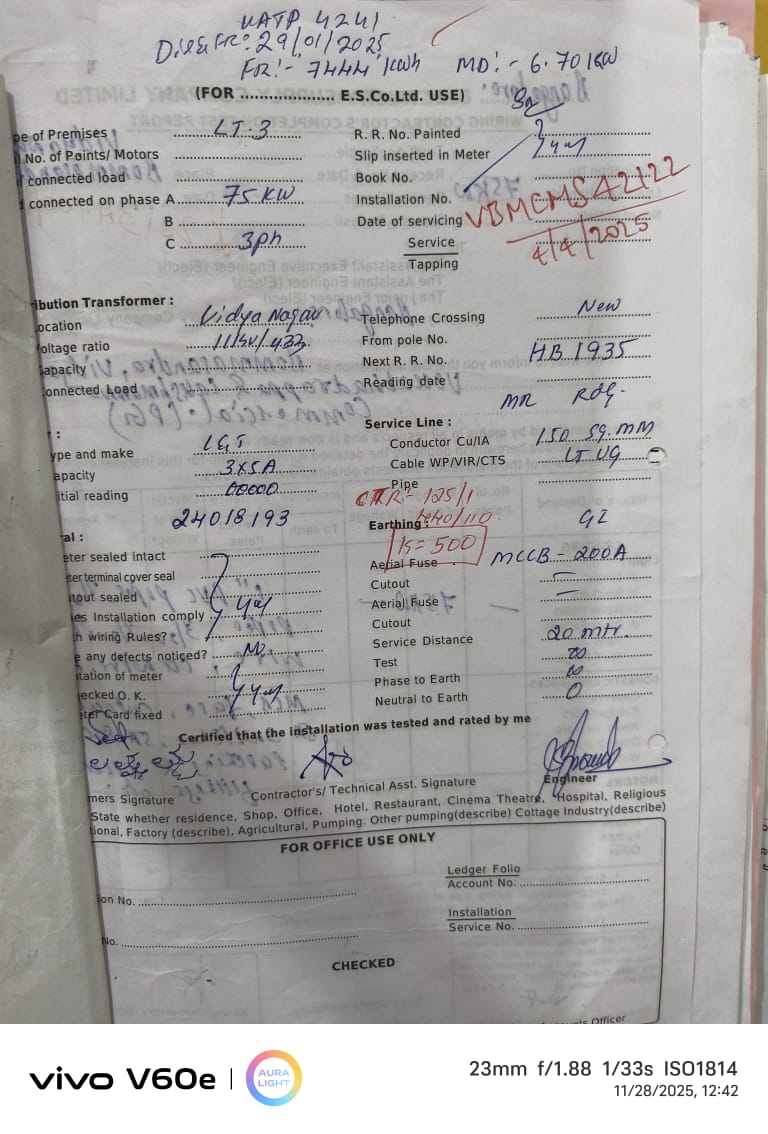 VATP 4241
29/01/2025
FR:- 7444 kwh MD:- 6.70 KW
(FOR .................... E.S.Co.Ltd. USE)
pe of Premises LT-3 R. R. No. Painted
No. of Points/ Motors Slip inserted in Meter
connected load Book No.
connected on phase A 75 KW Installation No. VBMCMS42122
B Date of servicing 4/4/2025
C 3ph Service
Tapping
ibution Transformer :
ocation Vidya Nagar Telephone Crossing New
oltage ratio 11kv/433 From pole No.
apacity Next R. R. No. HB 1935
onnected Load Reading date
MR RDG.
: Service Line :
ype and make L&T Conductor Cu/IA 150 SQ.MM
apacity 3x5A Cable WP/VIR/CTS LT UG
itial reading 00000 Pipe
24018193 CTR- 125/1
Earthing : 440/110 GI
al : K = 500
eter sealed intact Aerial Fuse MCCB - 200A
ter terminal cover seal Cutout —
tout sealed Aerial Fuse —
es Installation comply Cutout
h wiring Rules? Service Distance 20 mtr.
e any defects noticed? No Test ∞
tation of meter Phase to Earth ∞
ecked O. K. Neutral to Earth 0
eter Card fixed
Certified that the installation was tested and rated by me
mers Signature Contractor's/ Technical Asst. Signature Engineer
State whether residence, Shop, Office, Hotel, Restaurant, Cinema Theatre, Hospital, Religious
ional, Factory (describe), Agricultural, Pumping. Other pumping(describe) Cottage Industry(describe)
FOR OFFICE USE ONLY
Ledger Folio
Account No.
on No.
Installation
Service No.
No.
CHECKED
Officer
vivo V60e | AURA LIGHT
23mm f/1.88 1/33s ISO1814
11/28/2025, 12:42